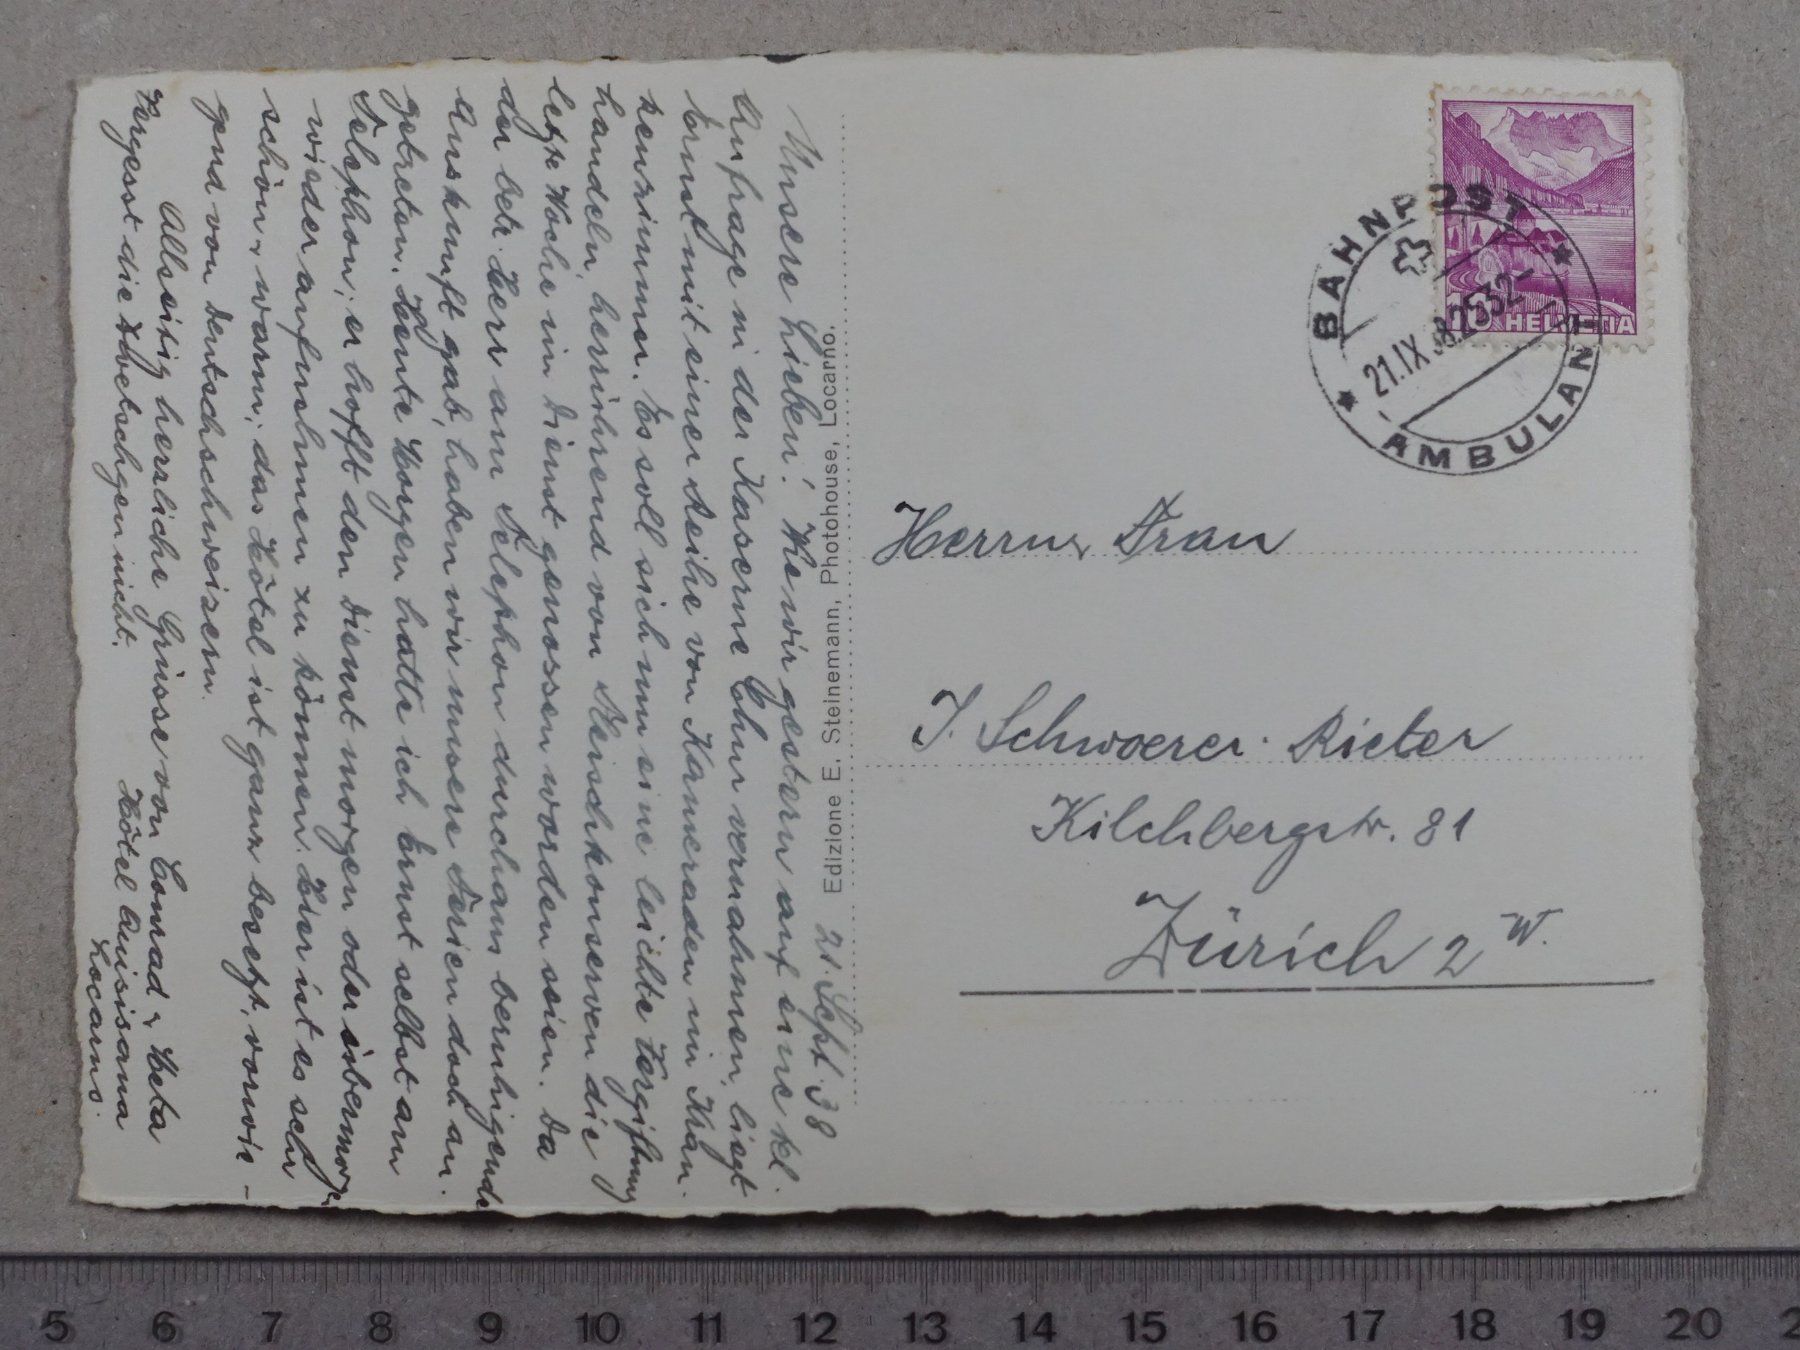 21. Sept. 38
Unsere Lieben! Wie wir gestern auf eine kl.
Anfrage in der Kaserne Chur vernahmen, liegt
Ernst mit einer Reihe von Kameraden im Kran-
kenzimmer. Es soll sich um eine leichte Vergiftung
handeln, herrührend von Fleischkonserven die
letzte Woche im Dienst genossen worden seien. Da
der betr. Herr am Telephon durchaus beruhigende
Auskunft gab, haben wir unsere Ferien doch an-
getreten. Heute Morgen hatte ich Ernst selbst am
Telephon; er hofft den Dienst morgen oder übermorgen
wieder aufnehmen zu können. Hier ist es sehr
schön, warm; das Hôtel ist ganz besetzt, vorwie-
gend von Deutschschweizern.
Allseitig herzliche Grüsse von Conrad & Meta
Vergesst die Abetschgen nicht.
Hôtel Quisisana
Locarno.
Edizione E. Steinemann, Photohouse, Locarno.
BAHNPOST
AMBULANT
21.IX.38.2532-
10 HELVETIA
Herrn & Frau
J. Schwoerer-Rieter
Kilchbergstr. 81
Zürich 2 W.
5 6 7 8 9 10 11 12 13 14 15 16 17 18 19 20 2